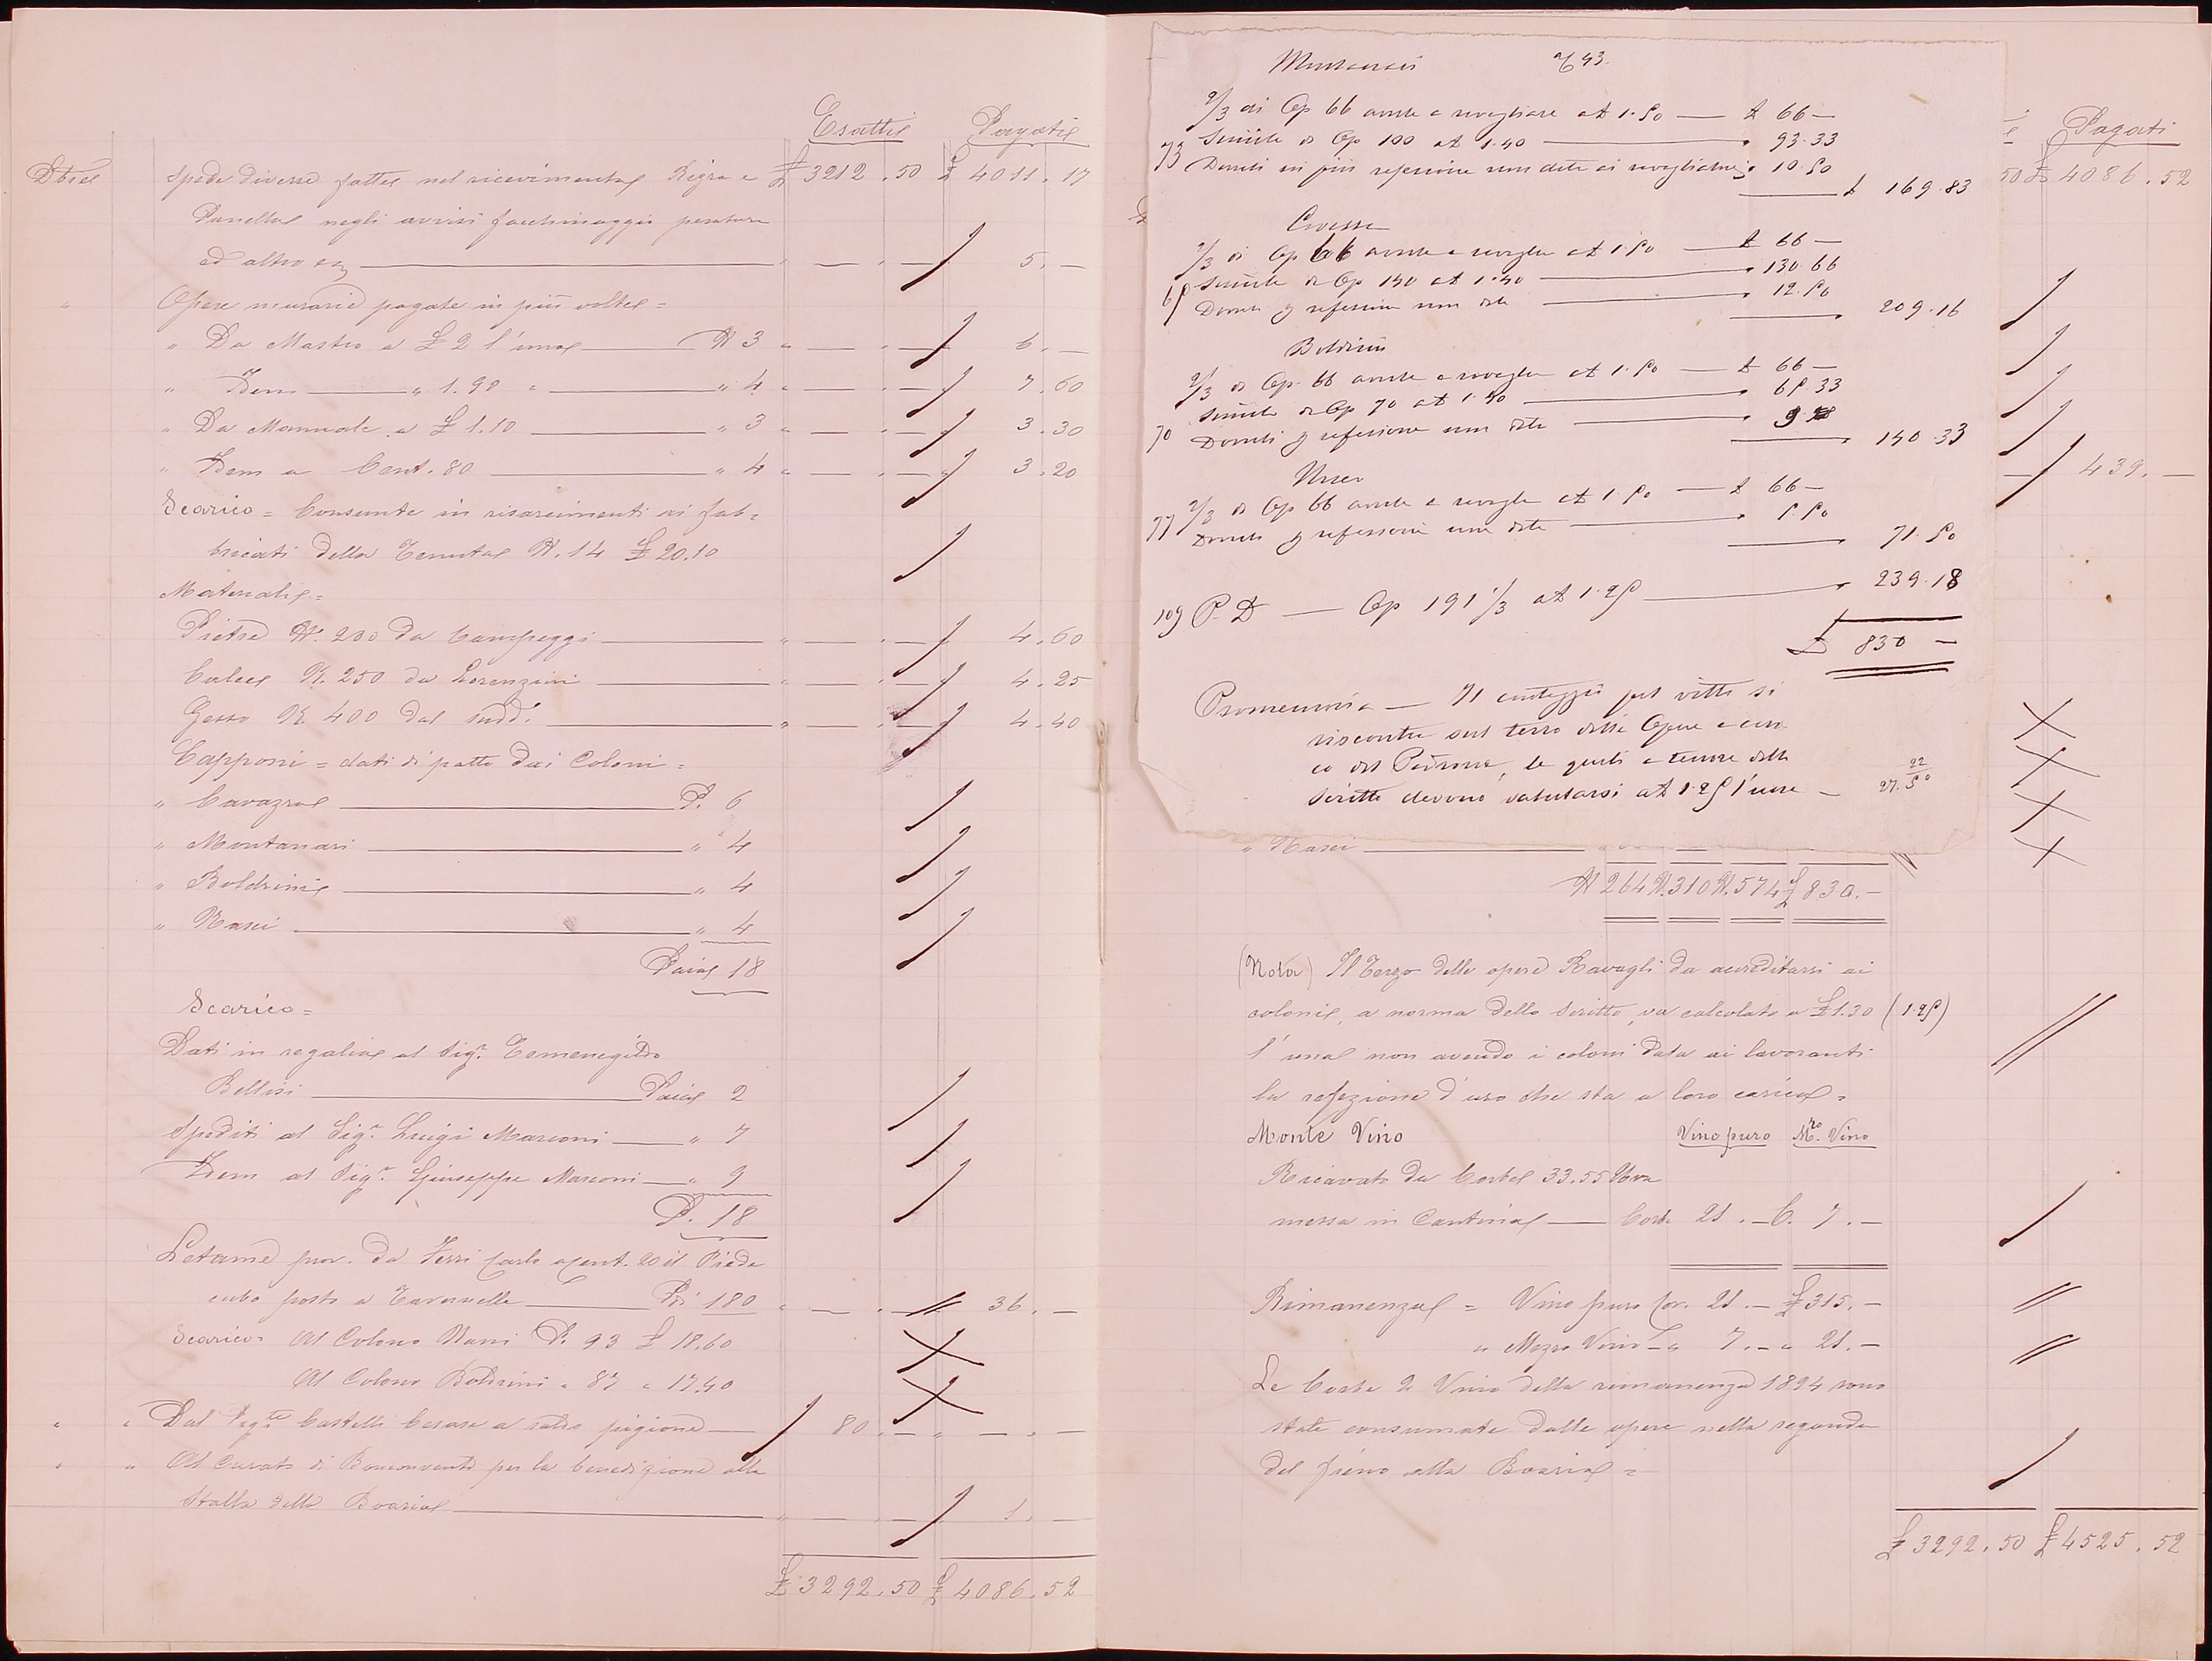 Esatti Pagati
Dbre Spese diverse fatte nel ricevimento Nigra e £ 3212.50 £ 4011.17
Panella negli avvisi facchinaggio pesatura
ed altro 5.—
" Opere murarie pagate in più volte =
" Da Mastro a £ 2 l'una N 3 " — . — 6.—
" Idem " 1.90 " " 4 " — . — 7.60
" Da Manuale a £ 1.10 " 3 " — . — 3.30
" Idem a Cent. 80 " 4 " — . — 3.20
Scarico = Consunte in risarcimenti ai fab=
bricati della Tenuta N. 14 £ 20.10
Materiali =
Pietre N. 200 da Campeggi " — . — 4.60
Calce K. 250 da Lorenzini " — . — 4.25
Gesso K. 400 dal sudd. " — . — 4.40
Capponi = dati di patto dai Coloni =
" Cavazza P. 6
" Montanari " 4
" Boldrini " 4
" Nasci " 4
Paia 18
Scarico =
Dati in regalia al Sigr. Ermenegildo
Bellisi Paia 2
Spediti al Sigr. Luigi Marconi " 7
Idem al Sigr. Giuseppe Marconi " 9
P. 18
Letame prov. da Ferri Carlo a Cent. 20 il Piede
cubo posto a Tavernelle Pi 180 " — . — 36.—
Scarico = Al Colono Nanni P. 93 £ 18.60
Al Colono Boldrini " 87 " 17.40
" " Dal Castelli Cesare a saldo pigione 80.— " — . —
" " Al Curato di Bonconvento per la benedizione alla
Stalla della Boaria " — . — 1.—
£ 3292.50 £ 4086.52
Montanari 43.
2/3 di Op 66 avute a ravagliare a £ 1.50 — £ 66 —
Simile di Op 100 a £ 1.40 — " 93.33
73 Dovuti in più refezione non data ai ravagliatori " 10.50
£ 169.83
2/3 di Op 66 avute a ravagliare a £ 1.50 — £ 66 —
Simile di Op 140 a £ 1.40 — " 130.66
Dovuti p refezione non data — " 12.50
209.16
Boldrini
2/3 di Op. 66 avute a ravagliare a £ 1.50 — £ 66 —
Simile di Op 70 a £ 1.40 — " 65.33
70 Dovuti p refezione non data —
140.33
Nasci
2/3 di Op 66 avute a ravagliare a £ 1.50 — £ 66 —
77 Dovuti p refezione non data — " 5.50
71.50
109 P. D — Op 191 1/3 a £ 1.25 — " 239.18
£ 830 —
Promemoria — Il conteggio pel vitto si
riscontra sul terzo delle Opere a cari-
co del Padrone, le quali a tenore della
Scritta devono valutarsi a £ 1.25 l'una —
22
27.50
Pagati
50 £ 4086.52
439.—
" Nasci
N 264 N. 310 N. 574 £ 830.—
(Nota) Il Terzo delle opere Ravagli da accreditarsi ai
coloni, a norma della Scritta, va calcolato a £ 1.30 (1.25)
l'una non avendo i coloni data ai lavoranti
la refezione d'uso che sta a loro carico =
Monte Vino Vino puro Mzo. Vino
Ricavato da Corbe 33.55 Uva
messa in Cantina — Corbe 21.— C. 7.—
Rimanenza = Vino puro Cor. 21.— £ 315.—
" Mezzo Vino — " 7.— " 21.—
Le Corbe 2 Vino della rimanenza 1894 sono
state consumate dalle opere nella seganda
del fieno alla Boaria =
£ 3292.50 £ 4525.52